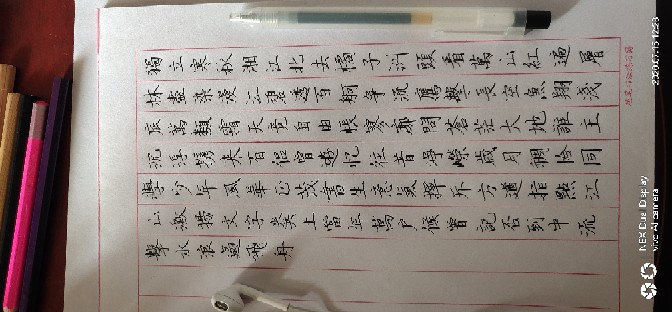 獨立寒秋湘江北去橘子洲頭看萬山紅遍層
林盡染漫江碧透百舸爭流鷹擊長空魚翔淺
底萬類霜天競自由悵寥廓問蒼茫大地誰主
沉浮攜來百侶曾遊憶往昔崢嶸歲月稠恰同
學少年風華正茂書生意氣揮斥方遒指點江
山激揚文字糞土當年萬戶侯曾記否到中流
擊水浪遏飛舟
NEX Dual Display
vivo AI camera
2020.07.15 12:23